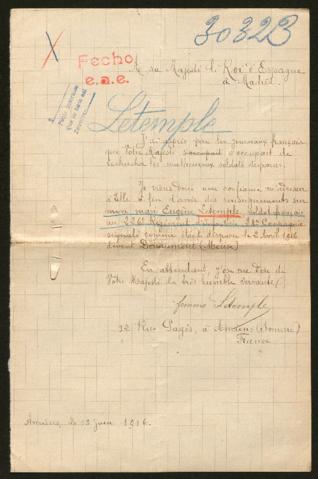 30323
Fecho
e.a.e.
A sa Majesté le Roi d'Espagne
à Madrid
Letemple
J'ai appris par les journaux français
que Votre Majesté s'occupait
rechercher les malheureux soldats disparus.
Je viens donc confiance
Elle à fin d'avoir des renseignements sur
mon mari Eugène Letemple, soldat français
au 226e Régiment d'Infanterie Compagnie
signalé comme étant disparu le 2 Avril 1916
devant Douaumont (Meuse)
En attendant, j'ose me dire de
Votre Majesté la très humble servante
femme Letemple
32 Rue Pagès, à Amiens (Somme)
France
Amiens, le 13 juin 1916.